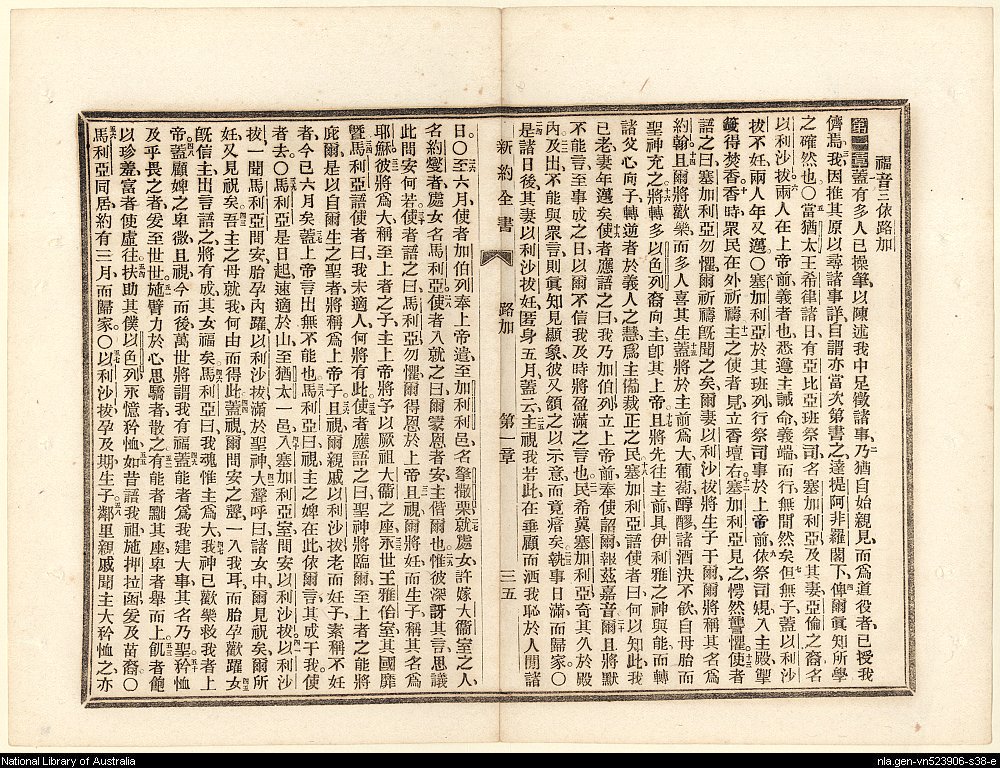 福音三依路加
第一章蓋有多人已操筆以陳述我中足徵諸事乃猶自始親見而爲道役者已授我
儕焉我因推其原以尋諸事詳自謂亦當次第書之達提阿非羅閣下俾爾眞知所學
之確然也〇當猶太王希律諸日有亞比亞班祭司名塞加利亞及其妻亞倫之裔名
以利沙拔兩人在上帝前義者也悉遵主誡命義端而行無閒然矣但無子蓋以利沙
拔不妊兩人年又邁〇塞加利亞於其班列行祭司事於上帝前依祭司規入主殿聖
籤得焚香香時眾民在外祈禱主之使者見立香壇右塞加利亞見之愕然讋懼使者
語之曰塞加利亞勿懼爾祈禱旣聞之矣爾妻以利沙拔將生子于爾爾將稱其名爲
約翰且爾將歡樂而多人喜其生蓋將於主前爲大葡萄醇醪諸酒決不飲自母胎而
聖神充之將轉多以色列裔向主卽其上帝且將先往主前具伊利雅之神與能而轉
諸父心向子轉逆者於義人之慧爲主備裁正之民塞加利亞語使者曰何以知此我
已老妻年邁矣使者應語之曰我乃加伯列立上帝前奉使詔爾報茲嘉音爾且將默
不能言至事成之日以爾不信我及時將盈滿之言也民希冀塞加利亞奇其久於殿
內及出不能與眾言則眞知見顯象彼又頷之以示意而竟瘖矣執事日滿而歸家〇
是諸日後其妻以利沙拔妊匿身五月蓋云主視我若此在垂顧而洒我恥於人閒諸
新約全書 路加 第一章 三五
日〇至六月使者加伯列奉上帝遣至加利利邑名拿撒栗就處女許嫁大闢室之人
名約燮者處女名馬利亞使者入就之曰爾蒙恩者安主偕爾也惟彼深訝其言思議
此問安何若使者語之曰馬利亞勿懼爾得恩於上帝且視爾將妊而生子稱其名爲
耶穌彼將爲大稱至上者之子主上帝將予以厥祖大闢之座永世王雅伯室其國靡
曁馬利亞語使者曰我未適人何將有此使者應語之曰聖神將臨爾至上者之能將
庇爾是以自爾生之聖者將稱爲上帝子且視爾親戚以利沙拔老而妊子素稱不妊
者今已六月矣蓋上帝言出無不能也馬利亞曰視主之婢在此依爾言其成于我使
者去〇馬利亞是日起速適於山至猶太一邑入塞加利亞室問安以利沙拔以利沙
拔一聞馬利亞問安胎孕內躍以利沙拔滿於聖神大聲呼曰諸女中爾見祝矣爾所
妊又見祝矣吾主之母就我何由而得此蓋視爾問安之聲一入我耳而胎孕歡躍女
旣信主出言語之將有成其女福矣馬利亞曰我魂惟主爲大我神已歡樂救我者上
帝蓋顧婢之卑微且視今而後萬世將謂我有福蓋能者爲我建大事其名乃聖矜恤
及乎畏之者爰至世世施臂力於心思驕者散之有能者黜其座卑者舉而上飢者飽
以珍羞富者使虛往扶助其僕以色列永憶矜恤如昔語我祖施押拉函爰及苗裔〇
馬利亞同居約有三月而歸家〇以利沙拔孕及期生子鄰里親戚聞主大矜恤之亦
National Library of Australia
nla.gen-vn523906-s38-e